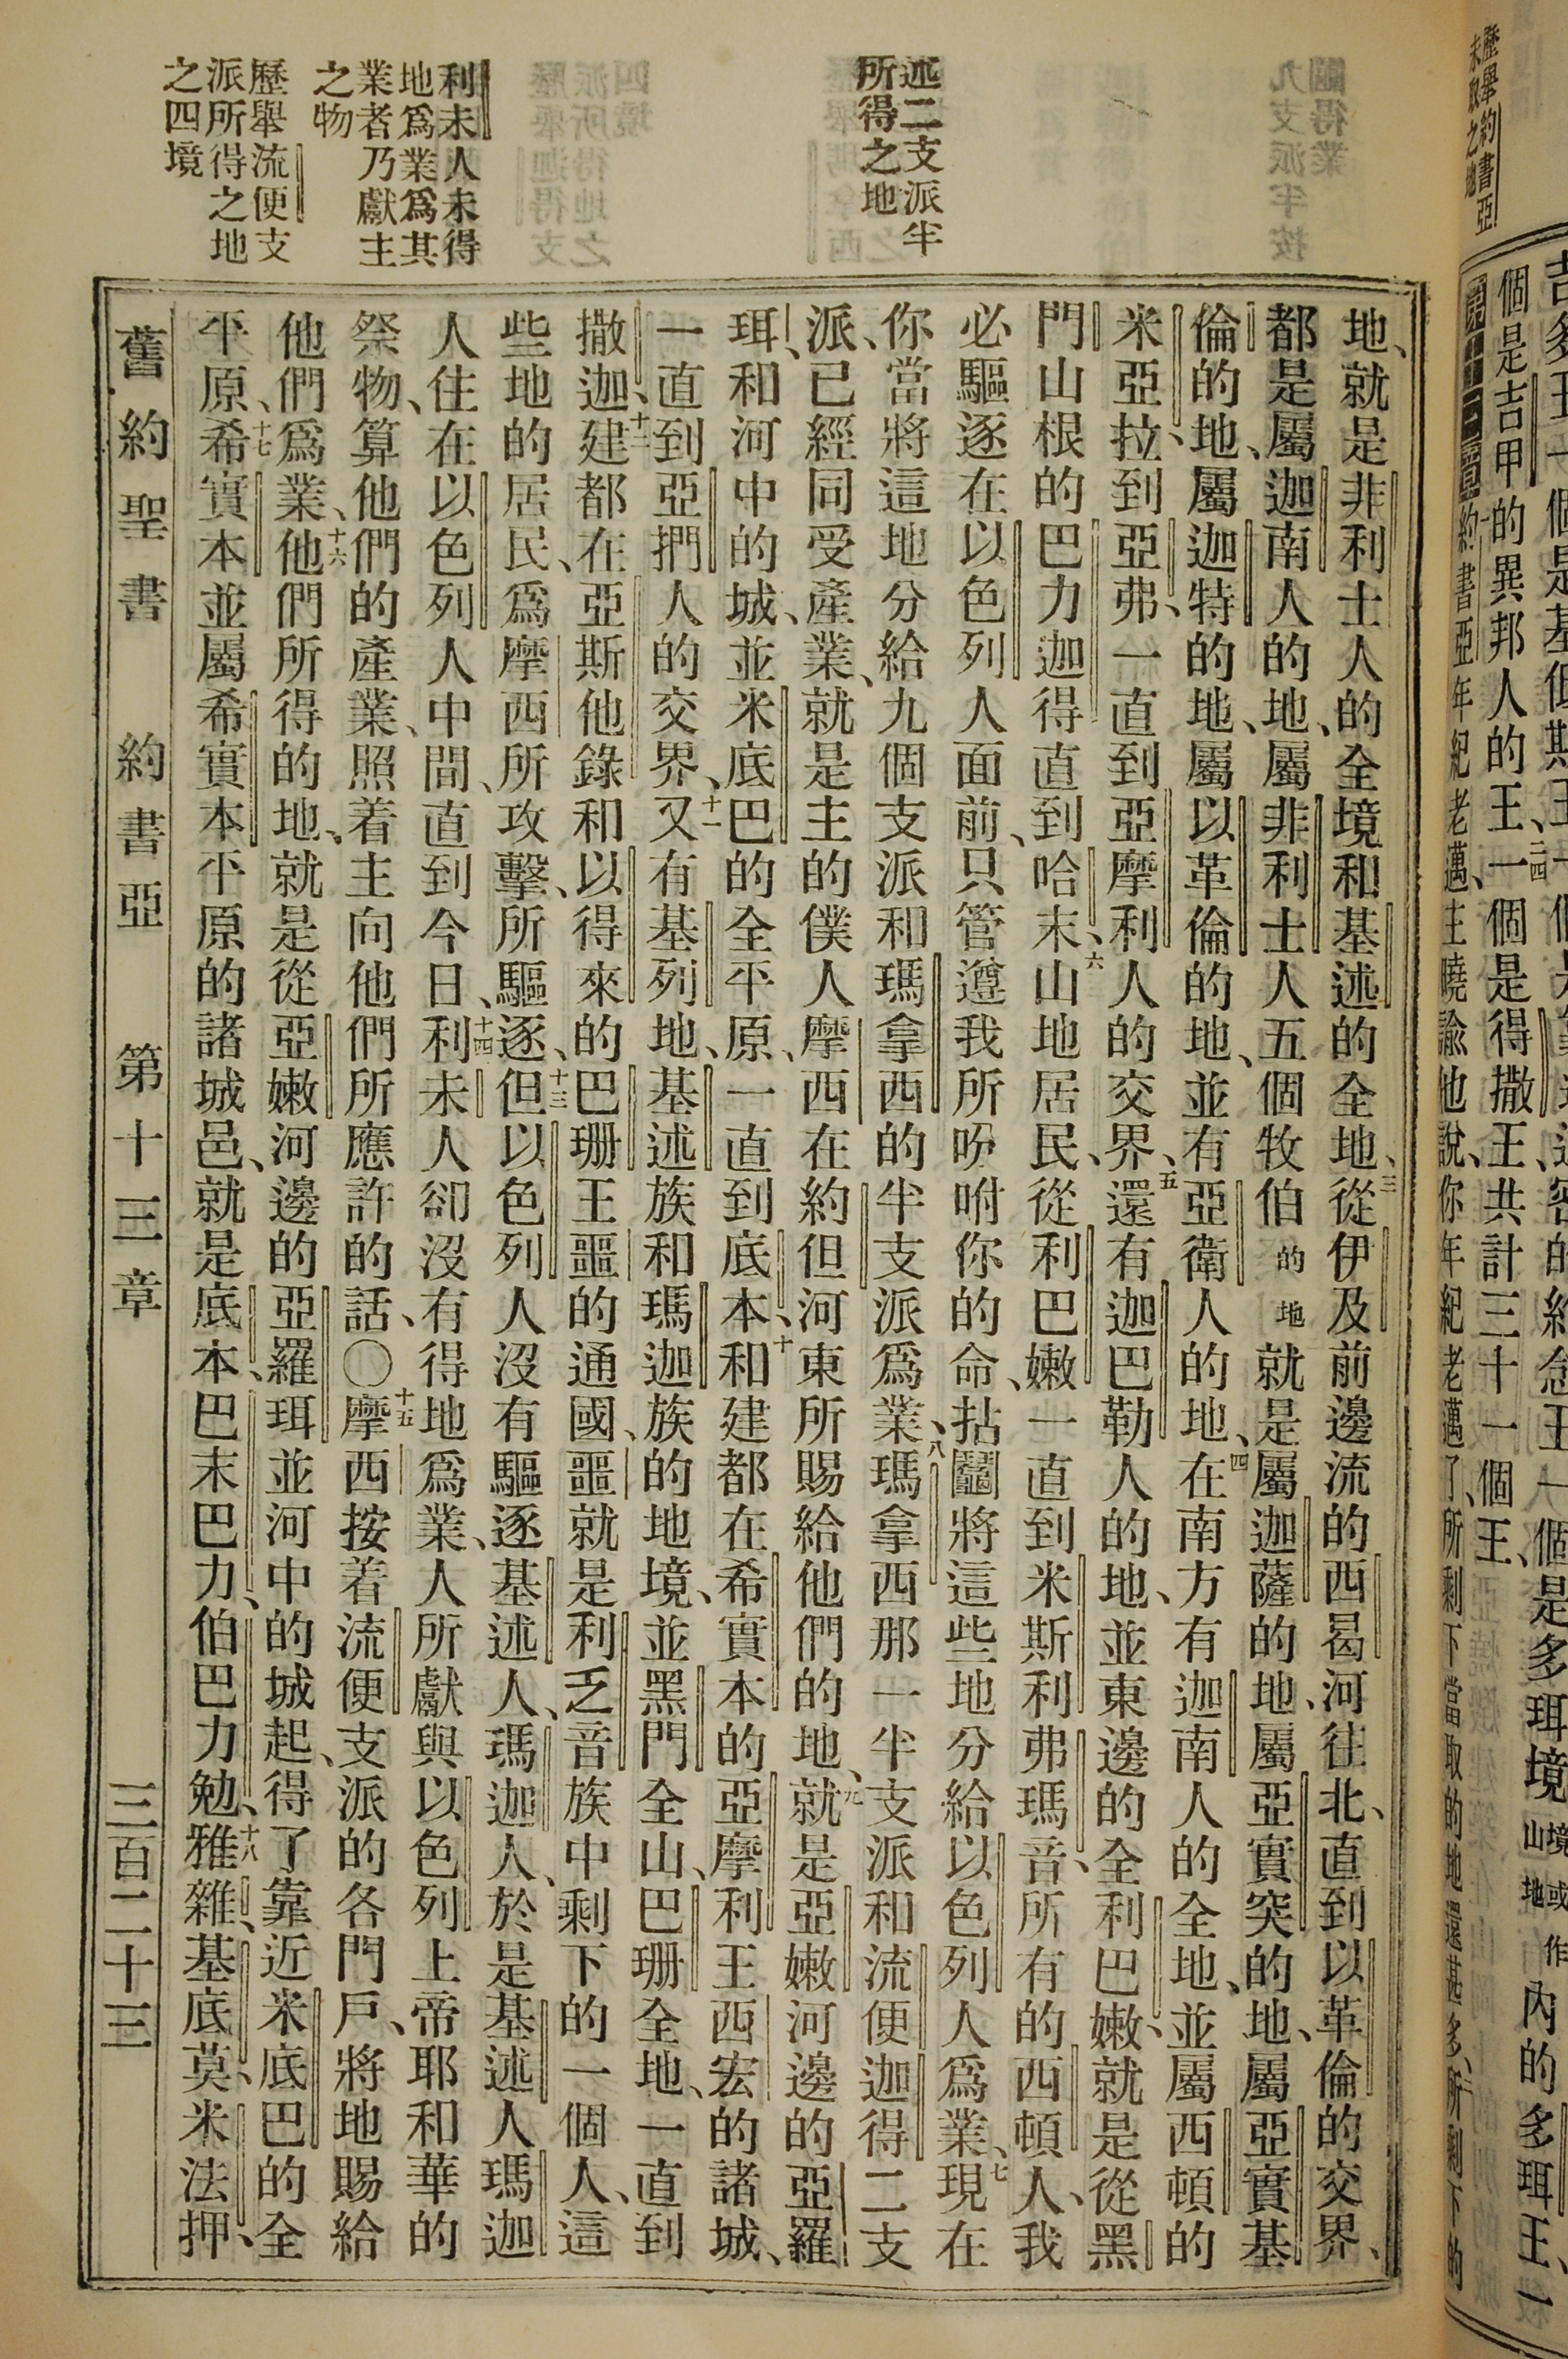 歷舉約書亞
未取之地
個是吉甲的異邦人的王、二四一個是得撒王、共計三十一個王、
約書亞年紀老邁、主曉諭他說、你年紀老邁了、所剩下當取的地還甚多、二所剩下的
述二支派半
所得之地
利未人未得
地爲業爲其
業者乃獻主
之物
歷舉流便支
派所得之地
之四境
地、就是非利士人的全境和基述的全地、三從伊及前邊流的西曷河往北、直到以革倫的交界、
都是屬迦南人的地、屬非利士人五個牧伯的地就是屬迦薩的地、屬亞實突的地、屬亞實基
倫的地、屬迦特的地、屬以革倫的地、並有亞衛人的地、四在南方有迦南人的全地、並屬西頓的
米亞拉、到亞弗、一直到亞摩利人的交界、五還有迦巴勒人的地、並東邊的全利巴嫩、就是從黑
門山根的巴力迦得直到哈末、六山地居民、從利巴嫩一直到米斯利弗瑪音、所有的西頓人、我
必驅逐在以色列人面前、只管遵我所吩咐你的命、拈鬮將這些地分給以色列人爲業、七現在
你當將這地分給九個支派和瑪拿西的半支派爲業、八瑪拿西那一半支派和流便迦得二支
派、已經同受產業、就是主的僕人摩西在約但河東所賜給他們的地、九就是亞嫩河邊的亞羅
珥、和河中的城、並米底巴的全平原、一直到底本、十和建都在希實本的亞摩利王西宏的諸城、
一直到亞捫人的交界、十一又有基列地、基述族和瑪迦族的地境、並黑門全山、巴珊全地、一直到
撒迦、十二建都在亞斯他錄和以得來的巴珊王噩的通國、噩就是利乏音族中剩下的一個人、這
些地的居民、爲摩西所攻擊、所驅逐、十三但以色列人沒有驅逐基述人、瑪迦人、於是基述人瑪迦
人住在以色列人中間、直到今日、十四利未人卻沒有得地爲業、人所獻與以色列上帝耶和華的
祭物、算他們的產業、照着主向他們所應許的話、〇十五摩西按着流便支派的各門戶、將地賜給
他們爲業、十六他們所得的地、就是從亞嫩河邊的亞羅珥並河中的城起、得了靠近米底巴的全
平原、十七希實本並屬希實本平原的諸城邑、就是底本、巴末巴力、伯巴力勉、十八雅雜、基底莫、米法押、
舊約聖書　約書亞　第十三章　三百二十三